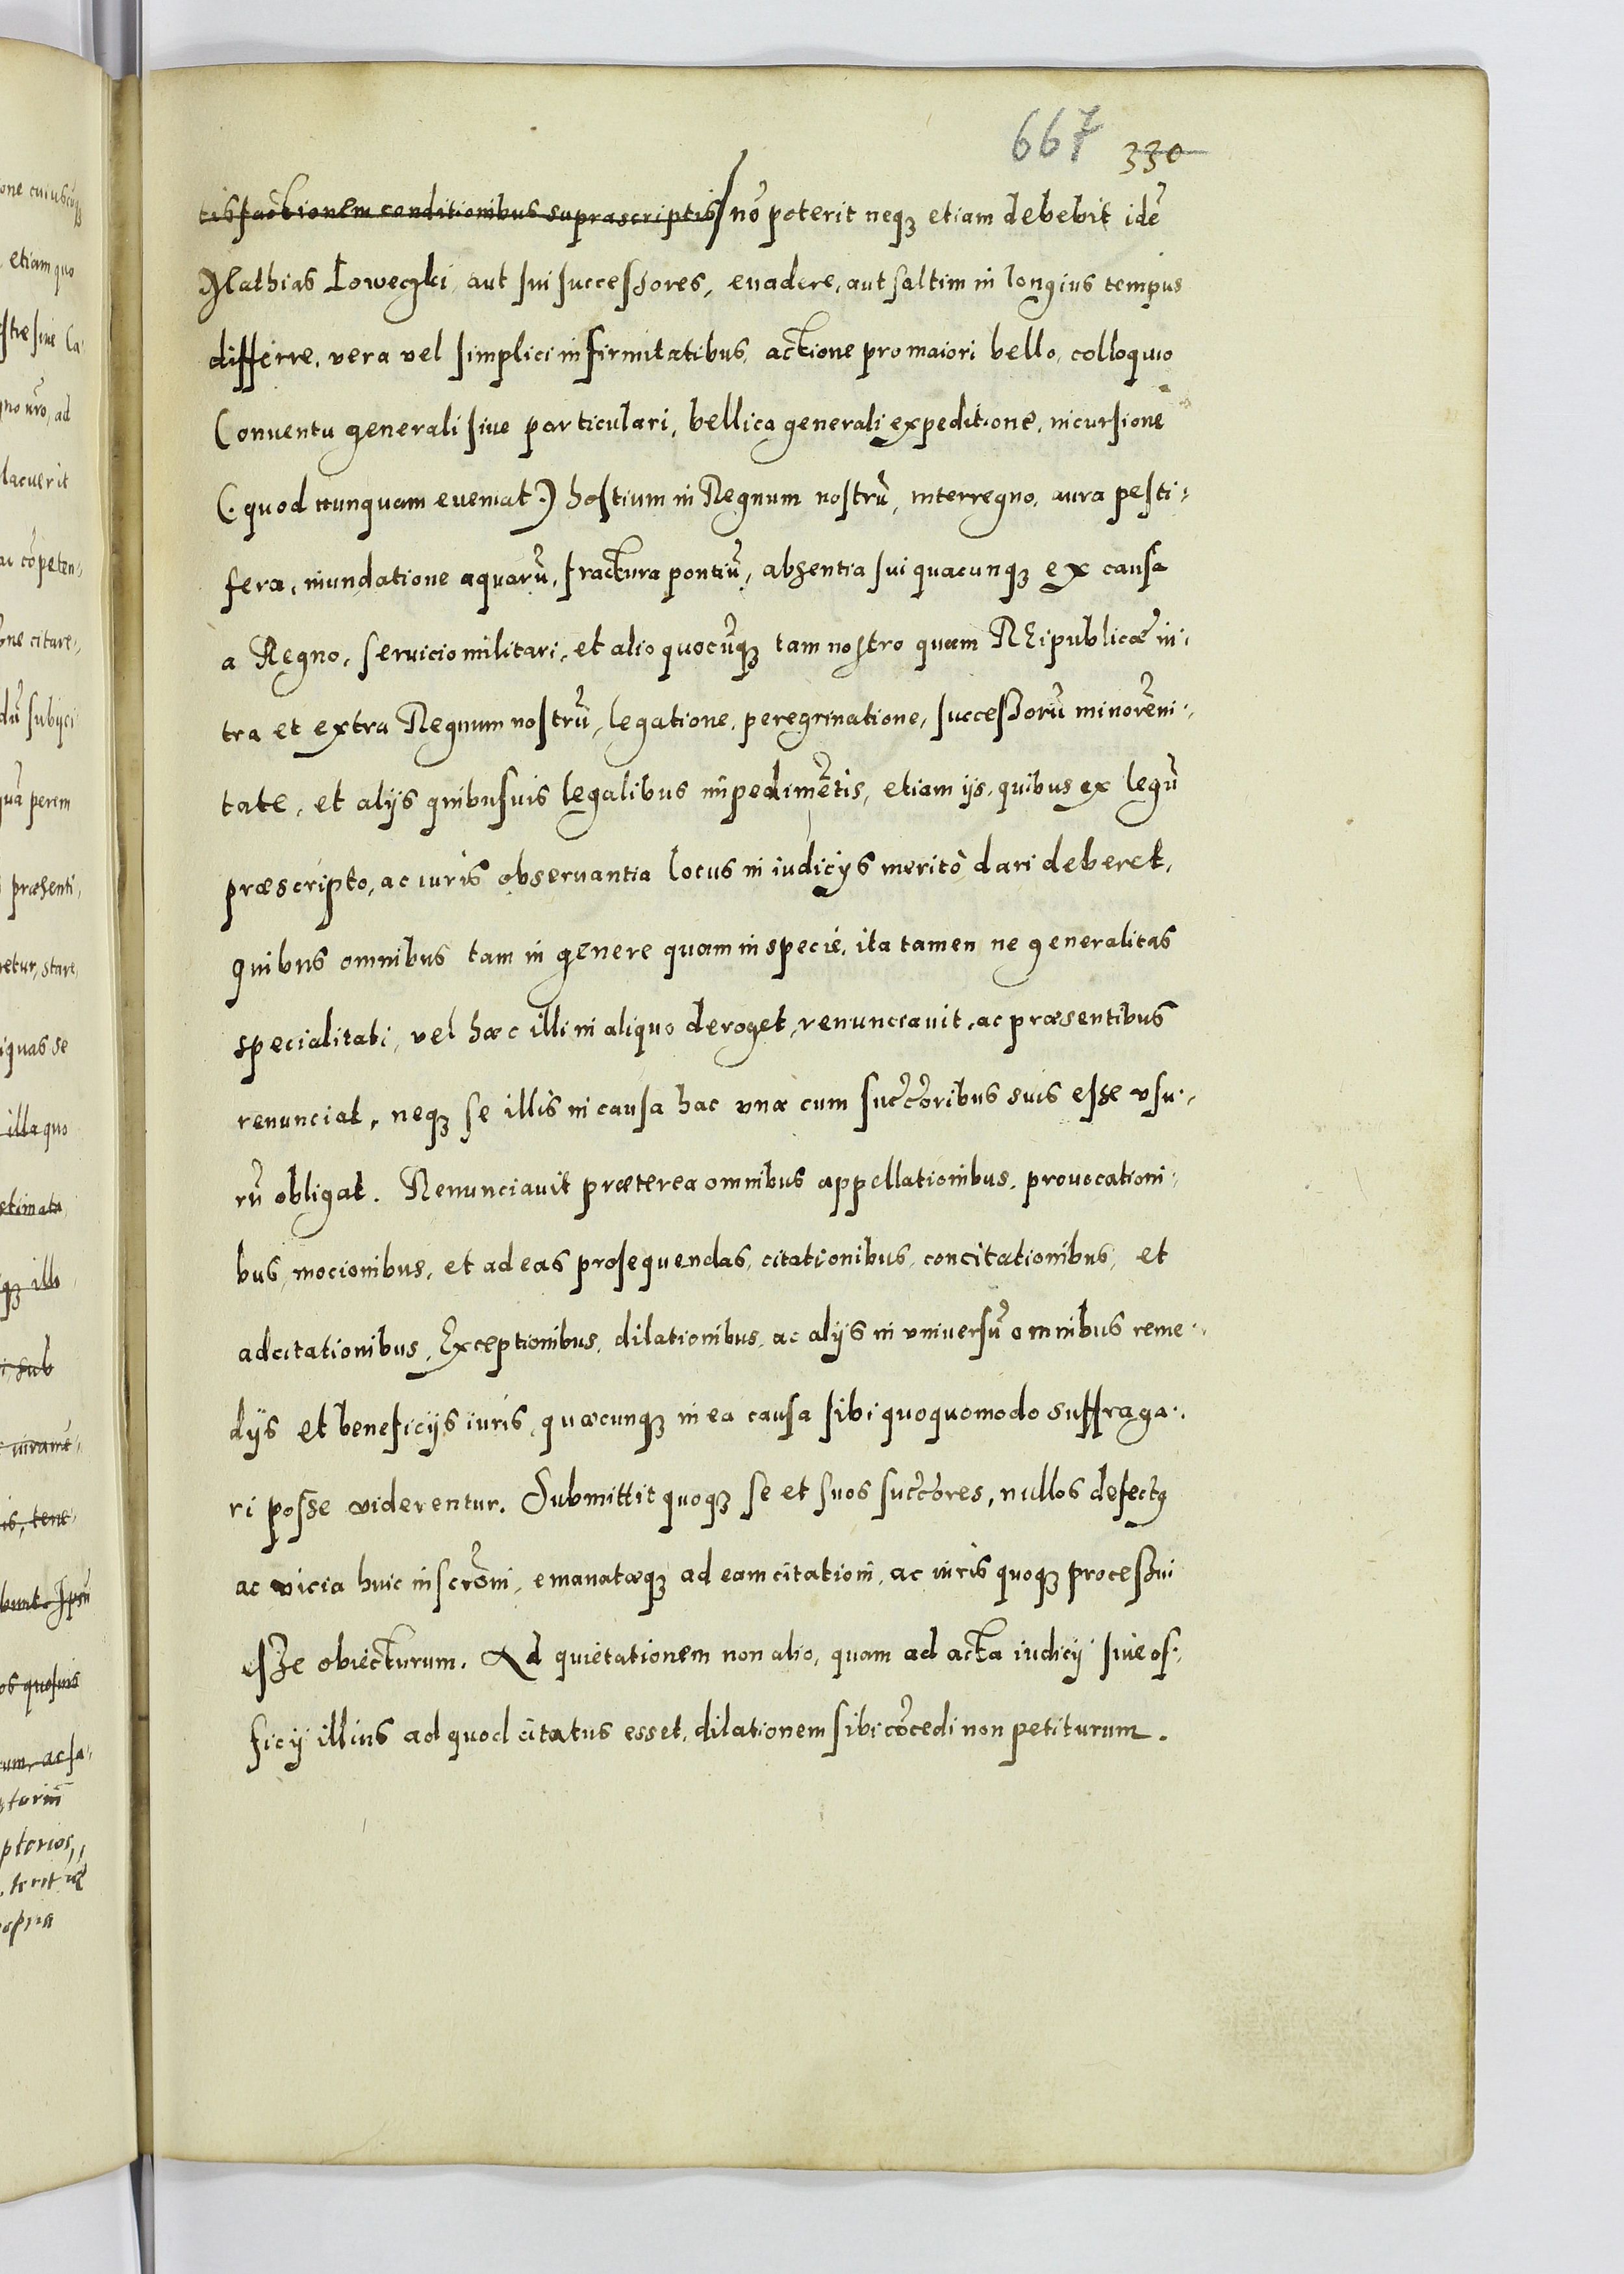 667 330
tisfactionem conditionibus suprascriptis nō poterit neqȝ etiam debebit idē
Mathias Łoweczki, aut sui successores, euadere, aut saltim in longius tempus
differre, vera vel simplici infirmitatibus, actione pro maiori bello, colloquio
Conuentu generali siue particulari, bellica generali expeditione, incursione
(. quod nunquam eueniat .) hostium in Regnum nostrū, interregno, aura pesti-
fera, inundatione aquarū, fractura pontiū, absentia sui quacunqȝ ex causa
a Regno, seruicio militari, et alio quocūqȝ tam nostro quam REipublicæ in-
tra et extra Regnum nostrū, legatione, peregrinatione, successorū minorēni-
tate, et alijs quibusuis legalibus impedimētis, etiam ijs, quibus ex legū
præscripto, ac iuris obseruantia locus in iudicijs meritò dari deberet,
quibus omnibus tam in genere quam in specie, ita tamen ne generalitas
specialitati, vel hæc illi in aliquo deroget, renunciauit, ac præsentibus
renunciat, neqȝ se illis in causa hac vna cum succ̄oribus suis esse vsu-
rū obligat. Renunciauit præterea omnibus appellationibus, prouocationi-
bus, mocionibus, et ad eas prosequendas, citationibus, concitationibus, et
adcitationibus, Exceptionibus, dilationibus, ac alijs in vniuersū omnibus reme-
dijs et beneficijs iuris, quæcunqȝ in ea causa sibi quoquomodo suffraga-
ri posse viderentur. Submittit quoqȝ se et suos succ̄ores, nullos defectꝰ
ac vicia huic inscrōni, emanatæqȝ ad eam citationi, ac iuris quoqȝ processui
esse obiecturum. Ad quietationem non alio, quam ad acta iudicij siue of-
ficij illius ad quod citatus esset, dilationem sibi cōcedi non petiturum.